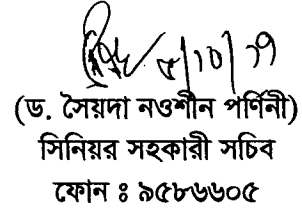 ৫/১০/১৭
(ড. সৈয়দা নওশীন পর্ণিনী)
সিনিয়র সহকারী সচিব
ফোন ঃ ৯৫৮৬৬০৫